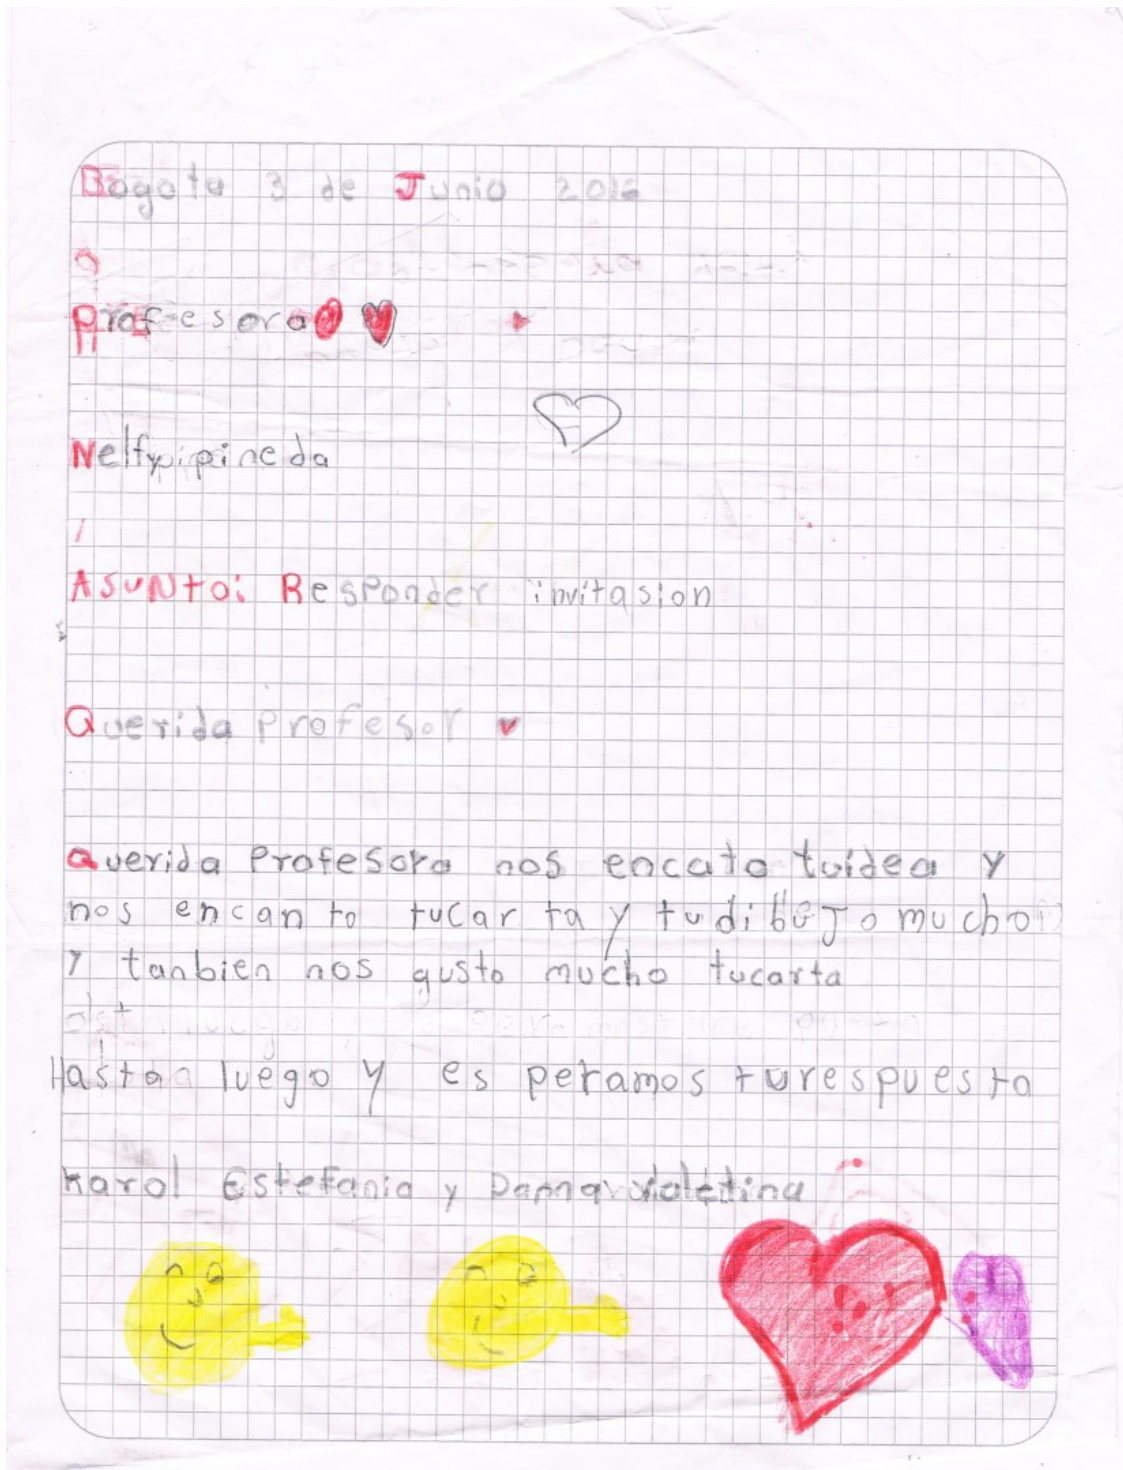 Bogota 3 de Junio 2016
Profesora
Nelfy pineda
ASUNto: Responder invitasion
Querida Profesor
Querida Profesora nos encato tuidea y
nos encanto tucarta y tu dibuJo mucho
Y tanbien nos gusto mucho tucarta
Hasta luego y esperamos turespuesta
karol Estefania y